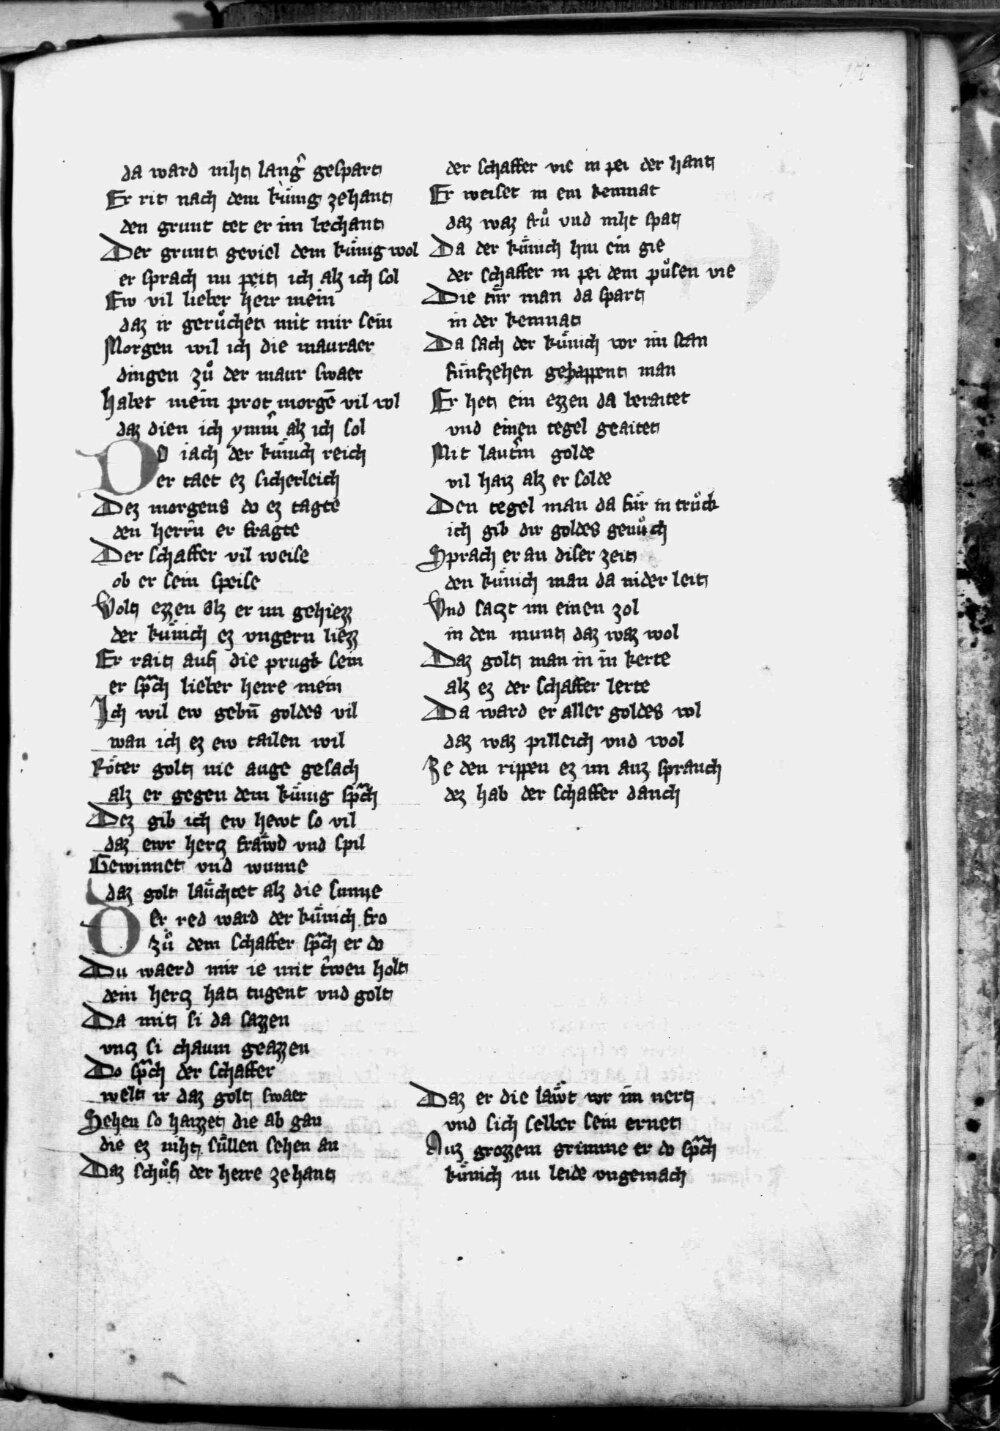 da ward niht lang̑ gespart
Er rit nach dem kuͤnig zehant
den grunt tet er im bechant
Der grunt geviel dem kuͤnig wol
er sprach nu peit ich alz ich sol
Ew vil lieber herr mein
daz ir geruͦchet mit mir sein
Morgen wil ich die mauraer
dingen zuͦ der maur swaer
habet mein prot morgē vil wol
daz dien ich ymm̑ alz ich sol
DO iach der kuͤnich reich
er taet ez sicherleich
Dez morgens do ez tagte
den herrn̄ er fragte
Der schaffer vil weise
ob er sein speise
Wolt ezzen alz er im gehiezz
der kuͤnich ez vngern liezz
Er rait auf die prugk sein
er sp̃ch lieber herre mein
Ich wil ew gebn̄ goldes vil
wan ich ez ew tailen wil
Roͤter golt nie auge gesach
alz er gegen dem kuͤnig sp̃ch
Dez gib ich ew hewt so vil
daz ewr hercz fraͤwd vnd spil
Gewinnet vnd wunne
daz golt lauͤchtet alz die sunne
Der red ward der kuͤnich fro
zuͦ dem schaffer sp̃ch er do
Du waerd mir ie mit t̑wen holt
dein hercz hat tugent vnd golt
Da mit si da sazzen
vncz si chaum geazzen
Do sp̃ch der schaffer
welt ir daz golt swaer
Sehen so haizzet die ab gan
die ez niht suͤllen sehen an
Daz schuͦf der herre zehant
der schaffer vie in pei der hant
Er weiset in ein kemnat
daz waz fruͦ vnd niht spat
Da der kuͤnich hin ein gie
der schaffer in pei dem puͦsen vie
Die tuͤr man da spart
in der kemnat
Da sach der kuͤnich vor im stan
fuͤnfzehen gechappent man
Er het ein ezzen da beraitet
vnd einen tegel geaitet
Mit lautm̑ golde
vil haiz alz er solde
Den tegel man da fuͤr in truͦck
ich gib dir goldes genuͦch
Sprach er an diser zeit
den kuͤnich man da nider leit
Vnd saczt im einen zol
in den munt daz waz wol
Daz golt man in in kerte
alz ez der schaffer lerte
Da ward er aller goldes vol
daz waz pilleich vnd wol
Ze den rippen ez im auz sprauch
dez hab der schaffer danch
Daz er die laͤwt vor im nert
vnd sich selber sein ernet
Auz grozzem grimme er do sp̃ch
kuͤnich nu leide vngemach